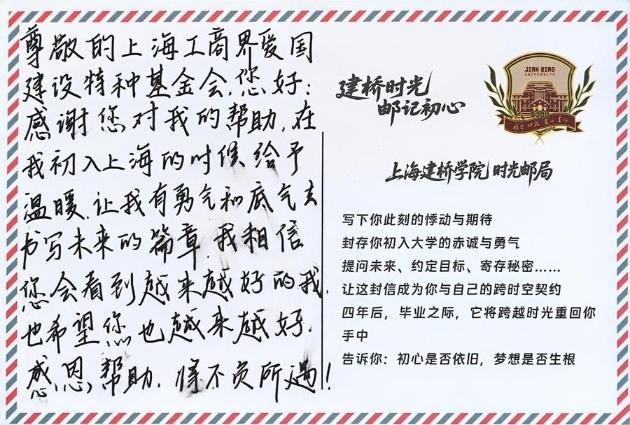 尊敬的上海工商界爱国
建设特种基金会,您好:
感谢您对我的帮助,在
我初入上海的时候给予
温暖,让我有勇气和底气去
书写未来的篇章,我相信
您会看到越来越好的我,
也希望您也越来越好.
感恩帮助,将不负所遇!
建桥时光
邮记初心
JIAN QIAO
UNIVERSITY
上海建桥学院 时光邮局
写下你此刻的悸动与期待
封存你初入大学的赤诚与勇气
提问未来、约定目标、寄存秘密……
让这封信成为你与自己的跨时空契约
四年后，毕业之际，它将跨越时光重回你
手中
告诉你：初心是否依旧，梦想是否生根